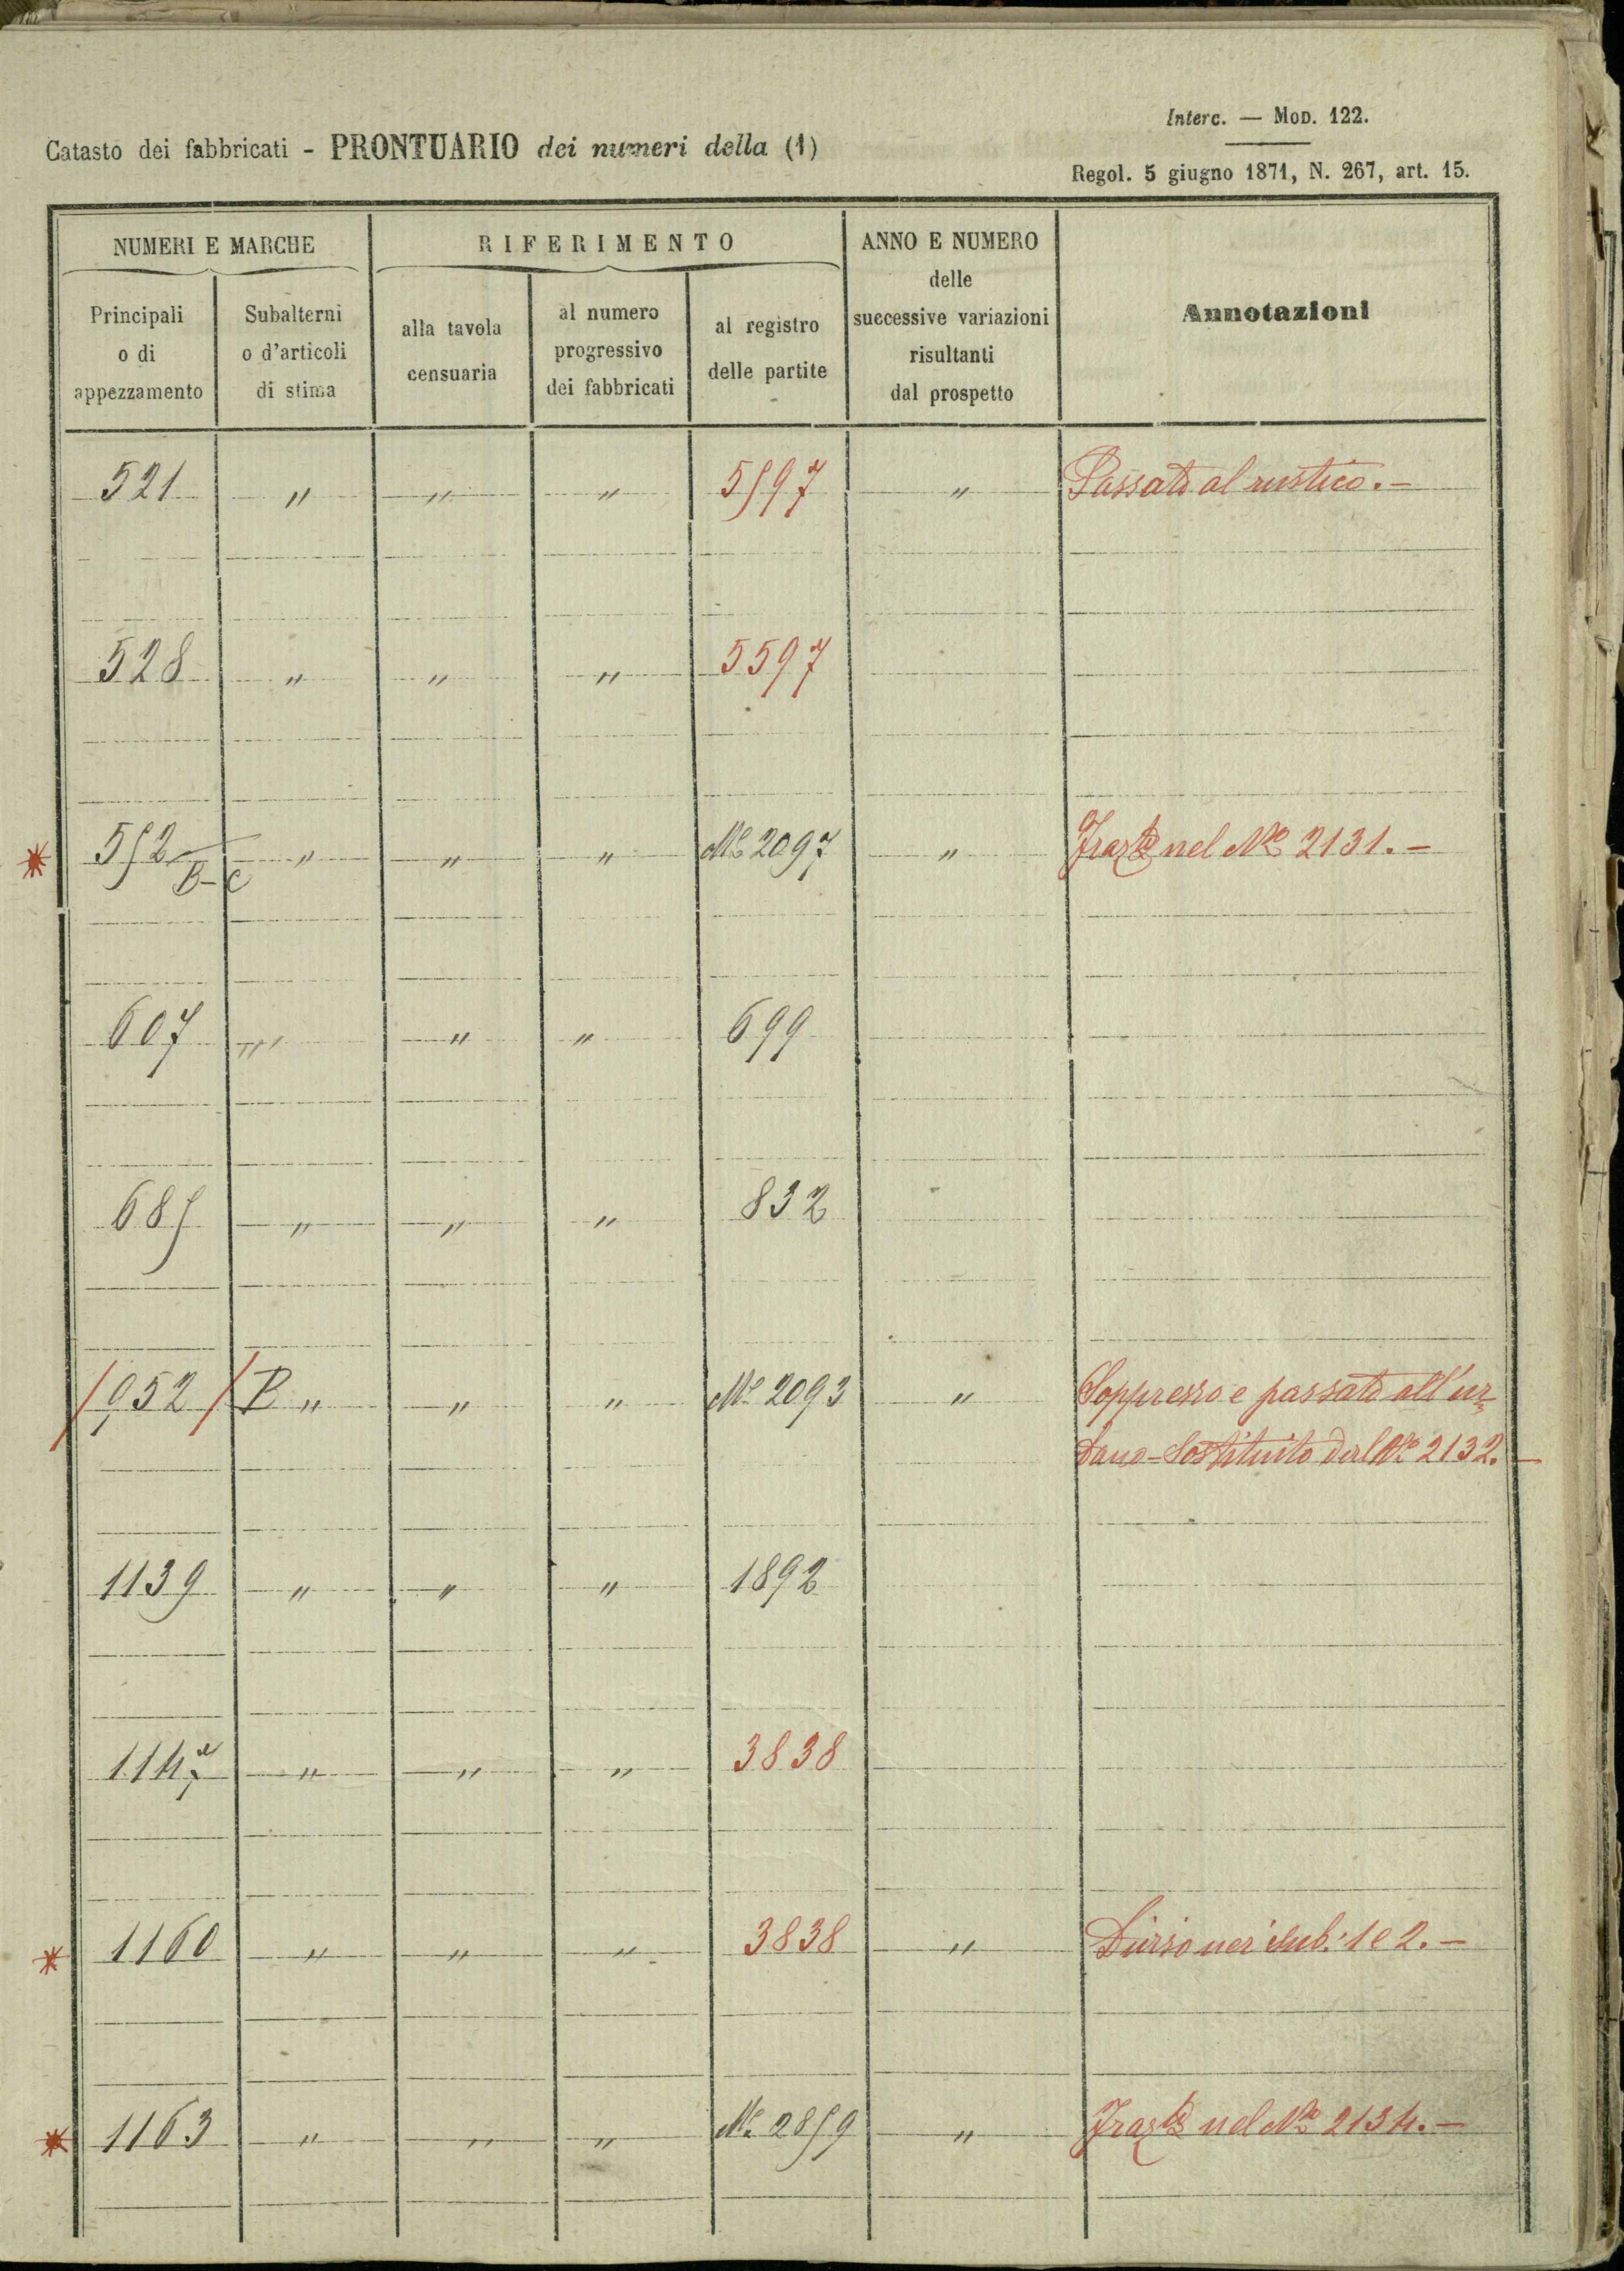 Interc. — MOD. 122.
Catasto dei fabbricati - PRONTUARIO dei numeri della (1)
Regol. 5 giugno 1871, N. 267, art. 15.
NUMERI E MARCHE
RIFERIMENTO
ANNO E NUMERO
delle
successive variazioni
risultanti
dal prospetto
Annotazioni
Principali
o di
appezzamento
Subalterni
o d'articoli
di stima
alla tavola
censuaria
al numero
progressivo
dei fabbricati
al registro
delle partite
521 " " " 5597 " Passato al rustico. -
528 " " " 5597
* 552/B-C " " " Me 2097 " Fraz.to nel No 2131. -
607 " " " 699
685 " " " 832
/952/ B " " " Me 2093 " Soppresso e passato all'ur
bano - Sostituito dal No 2132. -
1139 " " " 1892
1147 " " " 3838
* 1160 " " " 3838 " Diviso nei sub. 1 e 2. -
* 1163 " " " Me 2859 " Fraz.to nel No 2134. -